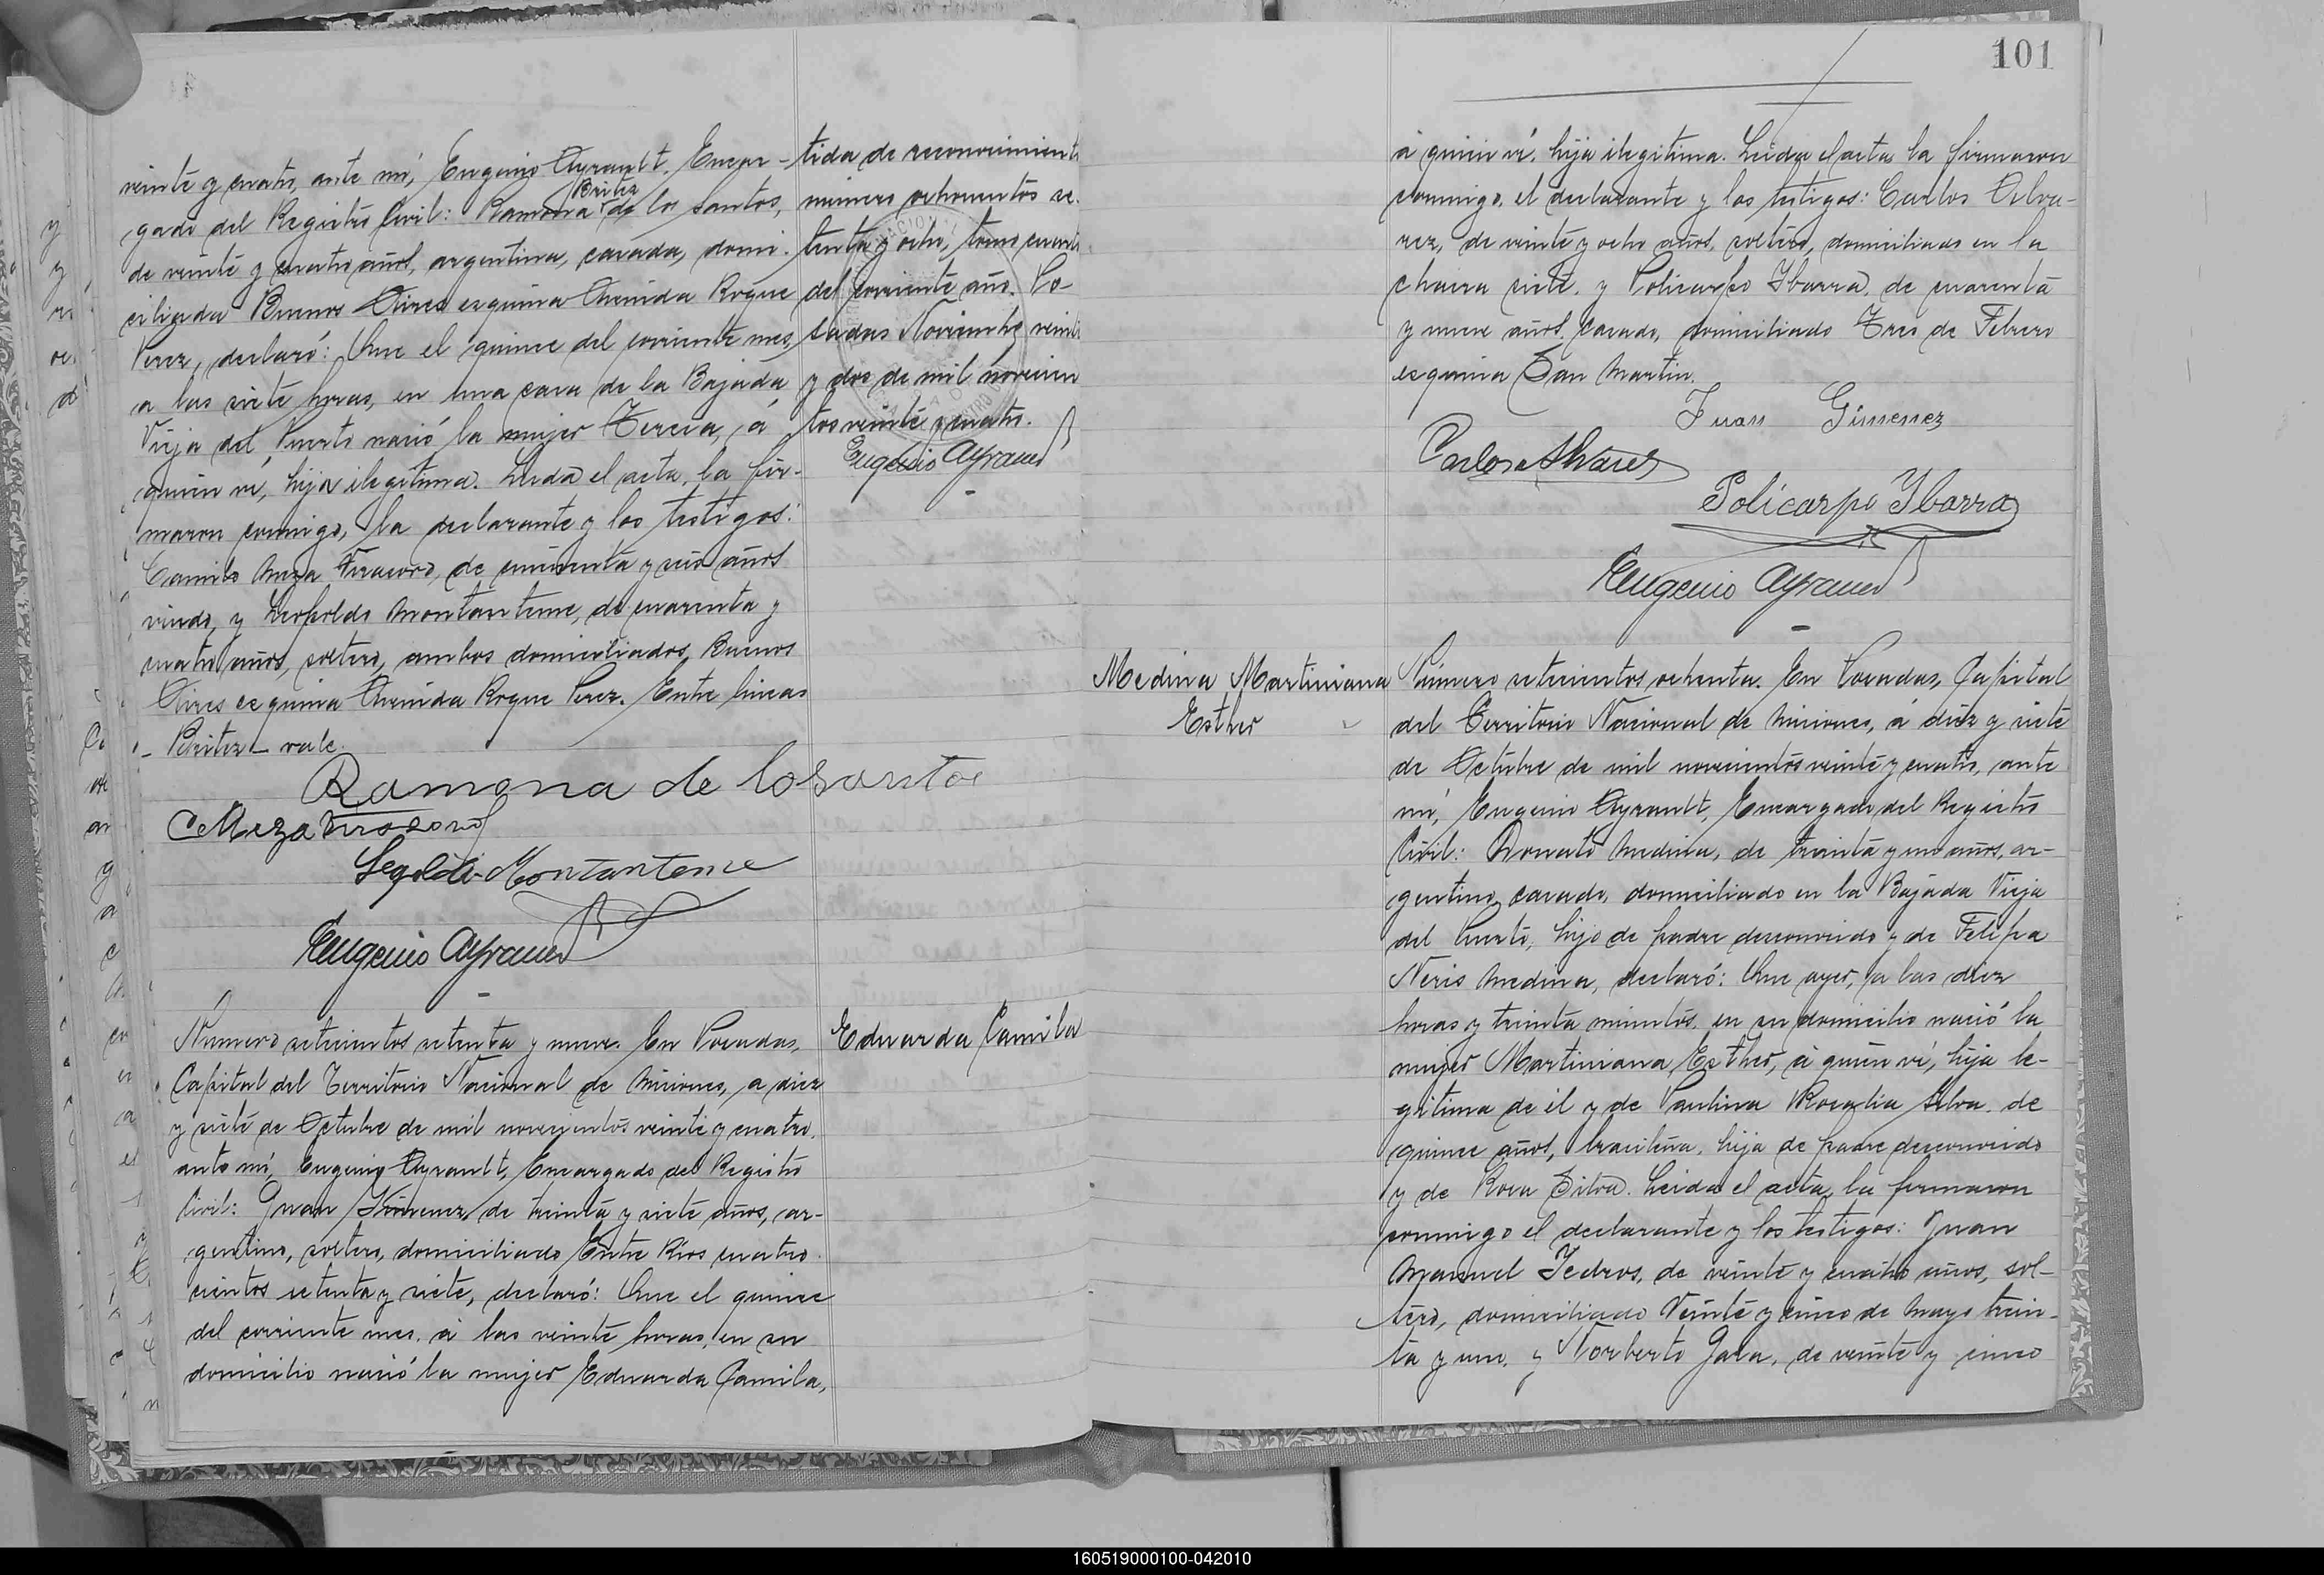 veinte y cuatro, ante mí, Eugenio Ayrault, Encar-
gado del Registro Civil: Ramona Britez de los Santos,
de veinte y cuatro años, argentina, casada, domi-
ciliada Buenos Aires esquina Avenida Roque
Perez, declaró: Que el quince del corriente mes,
a las siete horas, en una casa de la Bajada
Vieja del Puerto nació la mujer Teresa, á
quien ví, hija ilegitima. Leida el acta, la fir-
maron conmigo, la declarante y los testigos:
Camilo Meza de cincuenta y seis años
viudo, y Leopoldo Montanteme, de cuarenta y
cuatro años, soltero, ambos domiciliados, Buenos
Aires esquina Avenida Roque Perez. Entre lineas
- Britez - vale.
Ramona de los santos
C Meza
Montanteme
Eugenio Ayrault
tida de reconocimiento
número ochocientos se-
tenta y ocho, tomo cuarto
del corriente año. Po-
sadas Noviembre veinti
y dos de mil novecien
tos veinte y cuatro.
Eugenio Ayrault
Número setecientos setenta y nueve. En Posadas,
Capital del Territorio Nacional de Misiones, a diez
y siete de Octubre de mil novecientos veinte y cuatro,
ante mí, Eugenio Ayrault, Encargado del Registro
Civil: Juan Gimenez, de treinta y siete años, ar-
gentino, soltero, domiciliado Entre Rios cuatro-
cientos setenta y siete, declaró: Que el quince
del corriente mes, á las veinte horas, en su
domicilio nació la mujer Eduarda Camila,
Eduarda Camila
101
á quien ví, hija ilegitima. Leida el acta la firmaron
conmigo, el declarante y los testigos: Carlos Alva-
rez, de veinte y ocho años, soltero, domiciliado en la
chacra siete, y Policarpo Ybarra, de cuarenta
y nueve años, casado, domiciliado Tres de Febrero
esquina San Martin.
Juan Gimenez
Carlos Alvarez
Policarpo Ybarra
Eugenio Ayrault
Medina Martiniana
Esther
Número setecientos ochenta. En Posadas, Capital
del Territorio Nacional de Misiones, á diez y siete
de Octubre de mil novecientos veinte y cuatro, ante
mí, Eugenio Ayrault, Encargado del Registro
Civil: Donato Medina, de treinta y un años, ar-
gentino, casado, domiciliado en la Bajada Vieja
del Puerto, hijo de padre desconocido y de Felipa
Neris Medina, declaró: Que ayer, a las diez
horas y treinta minutos, en su domicilio nació la
mujer Martiniana Esther, á quien ví, hija le-
gitima de él y de Paulina Rosalia Silva, de
quince años, brasileña, hija de padre desconocido
y de Rosa Silva. Leida el acta, la firmaron
conmigo el declarante y los testigos: Juan
Manuel de veinte y cuatro años, sol-
tero, domiciliado Veinte y cinco de Mayo trein-
ta y uno, y Norberto Jara, de veinte y cinco
160519000100-042010